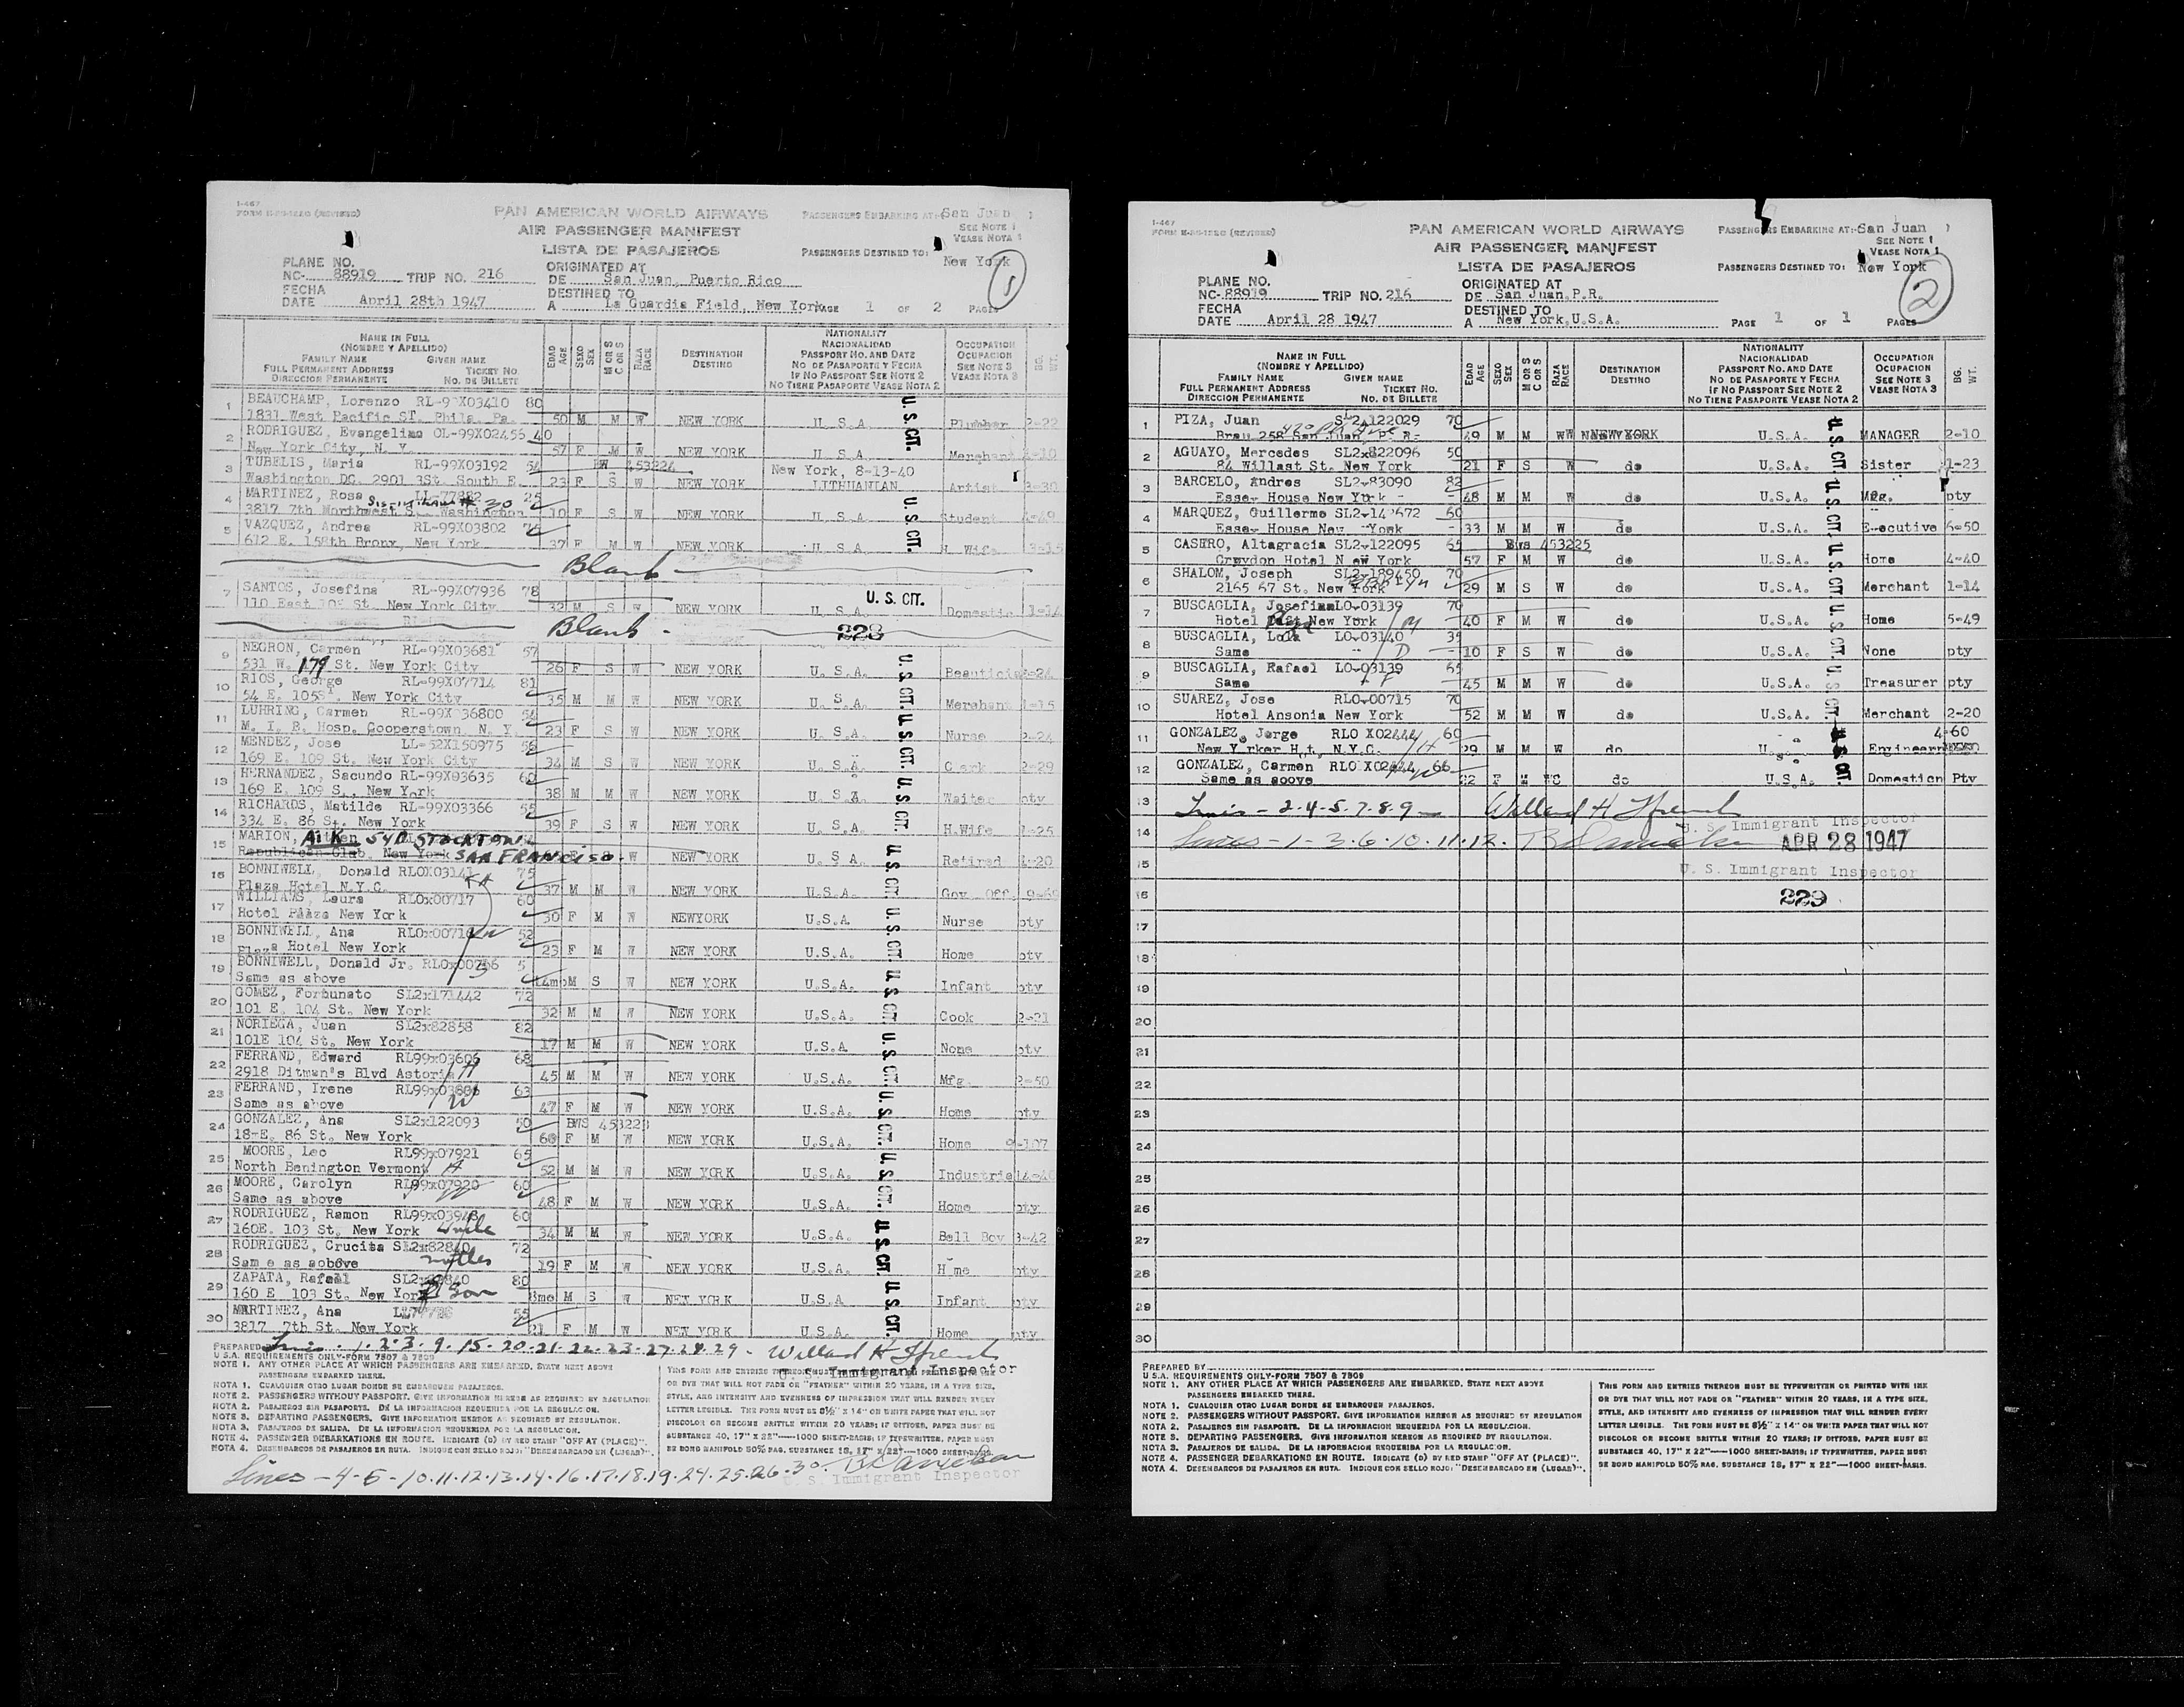 I-467
PAN AMERICAN WORLD AIRWAYS
AIR PASSENGER MANIFEST
LISTA DE PASAJEROS
PASSENGERS EMBARKING AT: San Juan
SEE NOTE 1
VEASE NOTA 1
PASSENGERS DESTINED TO:
New York
1
PLANE NO.
NC- 88919 TRIP NO. 216
ORIGINATED AT
DE San Juan, Puerto Rico
FECHA
DATE April 28th 1947
DESTINED TO
A La Guardia Field, New York
PAGE 1 OF 2 PAGES
NAME IN FULL
(NOMBRE Y APELLIDO)
FAMILY NAME GIVEN NAME
FULL PERMANENT ADDRESS TICKET NO.
DIRECCION PERMANENTE NO. DE BILLETE
EDAD AGE
SEXO SEX
M OR S C OR S
RAZA RACE
DESTINATION DESTINO
NATIONALITY
NACIONALIDAD
PASSPORT NO. AND DATE
NO DE PASAPORTE Y FECHA
IF NO PASSPORT SEE NOTE 2
NO TIENE PASAPORTE VEASE NOTA 2
OCCUPATION
OCUPACION
SEE NOTE 3
VEASE NOTA 3
BG. WT.
1 BEAUCHAMP, Lorenzo RL-99X03410 80
1831 West Pacific ST. Phila. Pa. 50 M M W NEW YORK U.S.A. Plumber 2-22
2 RODRIGUEZ, Evangelina OL-99X02456 40
New York City, N. Y. 57 F M W NEW YORK U.S.A. Merchant
3 TUBELIS, Maria RL-99X03192 54 BW 453224 New York, 8-13-40
Washington DC. 2901 3St. South E. 23 F S W NEW YORK LITHUANIAN Artist 3-30
4 MARTINEZ, Rosa 25
3817 7th Northwest S. Washington 10 F S W NEW YORK U.S.A. Student
5 VAZQUEZ, Andrea RL-99X03802 75
672 E. 158th Bronx, New York 37 F M W NEW YORK U.S.A. H. Wife 3-15
Blank
7 SANTOS, Josefina RL-99X07936 78
110 East St. New York City 32 M S W NEW YORK U.S.A. U. S. CIT. Domestic 1-14
Blank
223
9 NEGRON, Carmen RL-99X03681 57
531 W. 179 St. New York City 26 F S W NEW YORK U.S.A. Beautician
10 RIOS, George RL-99X07714 81
54 E. 105St. New York City 35 M M W NEW YORK U.S.A. Merchant 1-15
11 LUHRING, Carmen RL-99X 36800 54
M. I. B. Hosp. Cooperstown N. Y. 23 F S W NEW YORK U.S.A. Nurse 2-24
12 MENDEZ, Jose LL-52X150975 56
169 E. 109 St. New York City 34 M S W NEW YORK U.S.A. Clerk 2-29
13 HERNANDEZ, Sacundo RL-99X03635 60
169 E. 109 S., New York 38 M M W NEW YORK U.S.A. Waiter pty
14 RICHARDS, Matilde RL-99X03366 55
334 E. 86 St. New York 39 F S W NEW YORK U.S.A. H.Wife 1-25
15 MARION, Aitken 540 STOCKTON
Republican Club, New York SAN FRANCISCO. W NEW YORK U.S.A. Retired
16 BONNIWELL, Donald RLOX03141 75
Plaza Hotel N.Y.C. 37 M M W NEW YORK U.S.A. Gov. Off.
17 WILLIAMS, Laura RLOx00717 60
Hotel Plaza New York 30 F M W NEWYORK U.S.A. Nurse pty
18 BONNIWELL, Ana 52
Plaza Hotel New York 23 F M W NEW YORK U.S.A. Home pty
19 BONNIWELL, Donald Jr. 5
Same as above 14mo M S W NEW YORK U.S.A. Infant pty
20 GOMEZ, Fortunato SL2x171442 72
101 E. 104 St. New York 32 M M W NEW YORK U.S.A. Cook 2-21
21 NORIEGA, Juan SL2x82858 82
101E 104 St. New York 17 M M W NEW YORK U.S.A. None pty
22 FERRAND, Edward RL99x03606 68
2918 Ditman's Blvd Astoria H 45 M M W NEW YORK U.S.A. Mfg. 2-50
23 FERRAND, Irene RL99x03606 63
Same as above W 47 F M W NEW YORK U.S.A. Home pty
24 GONZALEZ, Ana SL2x122093 50 BWS 453223
18-E. 86 St. New York 60 F M W NEW YORK U.S.A. Home
25 MOORE, Leo RL99x07921 65
North Benington Vermont H 52 M M W NEW YORK U.S.A. Industrial
26 MOORE, Carolyn RL99x07920 60
Same as above W 48 F M W NEW YORK U.S.A. Home pty
27 RODRIGUEZ, Ramon RL99x03948 60
160E. 103 St. New York 34 M M W NEW YORK U.S.A. Bell Boy 3-42
28 RODRIGUEZ, Crucita SL2x82840 72
Sam e as aobove 19 F M W NEW YORK U.S.A. H me pty
29 ZAPATA, Rafael 80
160 E 103 St. New York Son 8mo M S W NEW YORK U.S.A Infant pty
30 MARTINEZ, Ana 55
3817 7th St. New York 21 F M W NEW YORK U.S.A. Home pty
PREPARED BY Lines . 1. 2. 3. 9. 15. 20. 21. 22. 23. 27. 28. 29 - Willard H French
U. S. Immigrant Inspector
U.S.A. REQUIREMENTS ONLY-FORM 7507 & 7509
NOTE 1. ANY OTHER PLACE AT WHICH PASSENGERS ARE EMBARKED. STATE NEXT ABOVE
PASSENGERS EMBARKED THERE.
NOTA 1. CUALQUIER OTRO LUGAR DONDE SE EMBARQUEN PASAJEROS.
NOTE 2. PASSENGERS WITHOUT PASSPORT. GIVE INFORMATION HEREON AS REQUIRED BY REGULATION
NOTA 2. PASAJEROS SIN PASAPORTE. DE LA INFORMACION REQUERIDA POR LA REGULACION.
NOTE 3. DEPARTING PASSENGERS. GIVE INFORMATION HEREON AS REQUIRED BY REGULATION.
NOTA 3. PASAJEROS DE SALIDA. DE LA INFORMACION REQUERIDA POR LA REGULACION.
NOTE 4. PASSENGER DEBARKATIONS EN ROUTE. INDICATE (D) BY RED STAMP "OFF AT (PLACE)".
NOTA 4. DESEMBARCOS DE PASAJEROS EN RUTA. INDIQUE CON SELLO ROJO: "DESEMBARCADO EN (LUGAR)".
THIS FORM AND ENTRIES THEREON MUST BE TYPEWRITTEN OR PRINTED WITH INK
OR DYE THAT WILL NOT FADE OR "FEATHER" WITHIN 20 YEARS, IN A TYPE SIZE,
STYLE, AND INTENSITY AND EVENNESS OF IMPRESSION THAT WILL RENDER EVERY
LETTER LEGIBLE. THE FORM MUST BE 8½" X 14" ON WHITE PAPER THAT WILL NOT
DISCOLOR OR BECOME BRITTLE WITHIN 20 YEARS; IF DITTOED, PAPER MUST BE
SUBSTANCE 40, 17" X 22"—1000 SHEET-BASIS; IF TYPEWRITTEN, PAPER MUST
BE BOND MANIFOLD 50% RAG, SUBSTANCE 18, 17" X 22"—1000 SHEET-BASIS.
Lines - 4-5-10.11.12.13.14.16.17.18.19.24.25.26.30
U. S. Immigrant Inspector
I-467
PAN AMERICAN WORLD AIRWAYS
AIR PASSENGER MANIFEST
LISTA DE PASAJEROS
PASSENGERS EMBARKING AT: San Juan
SEE NOTE 1
VEASE NOTA 1
PASSENGERS DESTINED TO: New York
2
PLANE NO.
NC- 88919 TRIP NO. 216
ORIGINATED AT
DE San Juan, P.R.
FECHA
DATE April 28 1947
DESTINED TO
A New York, U.S.A.
PAGE 1 OF 1 PAGES
NAME IN FULL
(NOMBRE Y APELLIDO)
FAMILY NAME GIVEN NAME
FULL PERMANENT ADDRESS TICKET NO.
DIRECCION PERMANENTE NO. DE BILLETE
EDAD AGE
SEXO SEX
M OR S C OR S
RAZA RACE
DESTINATION DESTINO
NATIONALITY
NACIONALIDAD
PASSPORT NO. AND DATE
NO DE PASAPORTE Y FECHA
IF NO PASSPORT SEE NOTE 2
NO TIENE PASAPORTE VEASE NOTA 2
OCCUPATION
OCUPACION
SEE NOTE 3
VEASE NOTA 3
BG. WT.
1 PIZA, Juan SL2x122029 70
Brau 258 San Juan P. R. 49 M M W NEWYORK U.S.A. MANAGER 2-10
2 AGUAYO, Mercedes SL2x822096 50
84 Willast St. New York 21 F S W do U.S.A. Sister 1-23
3 BARCELO, Andres SL2-83090 82
Essex House New York 48 M M W do U.S.A. Mfg. pty
4 MARQUEZ, Guillermo 60
Essex House New York 33 M M W do U.S.A. Executive 6-50
5 CASTRO, Altagracia SL2-122095 65 Bws 453225
Croydon Hotel N ew York 57 F M W do U.S.A. Home 4-40
6 SHALOM, Joseph SL2-189450 70
2165 67 St. New York 29 M S W do U.S.A. Merchant 1-14
7 BUSCAGLIA, Josefina LO-03139 70
Hotel New York 40 F M W do U.S.A. Home 5-49
8 BUSCAGLIA, Lola LO-03140 35
Same D 10 F S W do U.S.A. None pty
9 BUSCAGLIA, Rafael LO-03139 65
Same 45 M M W do U.S.A. Treasurer pty
10 SUAREZ, Jose RLO-00715 70
Hotel Ansonia New York 52 M M W do U.S.A. Merchant 2-20
11 GONZALEZ, Jorge RLO X02444 60 4-60
New Yorker Ht, N.Y.C. H 29 M M W do Engineer
12 GONZALEZ, Carmen RLO X02444 66
Same as above 22 F M do U.S.A. Domestic Pty
13 Lines - 2-4-5.7.8.9 - Willard H French
U. S. Immigrant Inspector
14 Lines - 1-3-6-10.11.12.
APR 28 1947
15
U. S. Immigrant Inspector
16 223
17
18
19
20
21
22
23
24
25
26
27
28
29
30
PREPARED BY
U.S.A. REQUIREMENTS ONLY-FORM 7507 & 7509
NOTE 1. ANY OTHER PLACE AT WHICH PASSENGERS ARE EMBARKED. STATE NEXT ABOVE
PASSENGERS EMBARKED THERE.
NOTA 1. CUALQUIER OTRO LUGAR DONDE SE EMBARQUEN PASAJEROS.
NOTE 2. PASSENGERS WITHOUT PASSPORT. GIVE INFORMATION HEREON AS REQUIRED BY REGULATION
NOTA 2. PASAJEROS SIN PASAPORTE. DE LA INFORMACION REQUERIDA POR LA REGULACION.
NOTE 3. DEPARTING PASSENGERS. GIVE INFORMATION HEREON AS REQUIRED BY REGULATION.
NOTA 3. PASAJEROS DE SALIDA. DE LA INFORMACION REQUERIDA POR LA REGULACION.
NOTE 4. PASSENGER DEBARKATIONS EN ROUTE. INDICATE (D) BY RED STAMP "OFF AT (PLACE)".
NOTA 4. DESEMBARCOS DE PASAJEROS EN RUTA. INDIQUE CON SELLO ROJO: "DESEMBARCADO EN (LUGAR)".
THIS FORM AND ENTRIES THEREON MUST BE TYPEWRITTEN OR PRINTED WITH INK
OR DYE THAT WILL NOT FADE OR "FEATHER" WITHIN 20 YEARS, IN A TYPE SIZE,
STYLE, AND INTENSITY AND EVENNESS OF IMPRESSION THAT WILL RENDER EVERY
LETTER LEGIBLE. THE FORM MUST BE 8½" X 14" ON WHITE PAPER THAT WILL NOT
DISCOLOR OR BECOME BRITTLE WITHIN 20 YEARS; IF DITTOED, PAPER MUST BE
SUBSTANCE 40, 17" X 22"—1000 SHEET-BASIS; IF TYPEWRITTEN, PAPER MUST
BE BOND MANIFOLD 50% RAG, SUBSTANCE 18, 17" X 22"—1000 SHEET-BASIS.